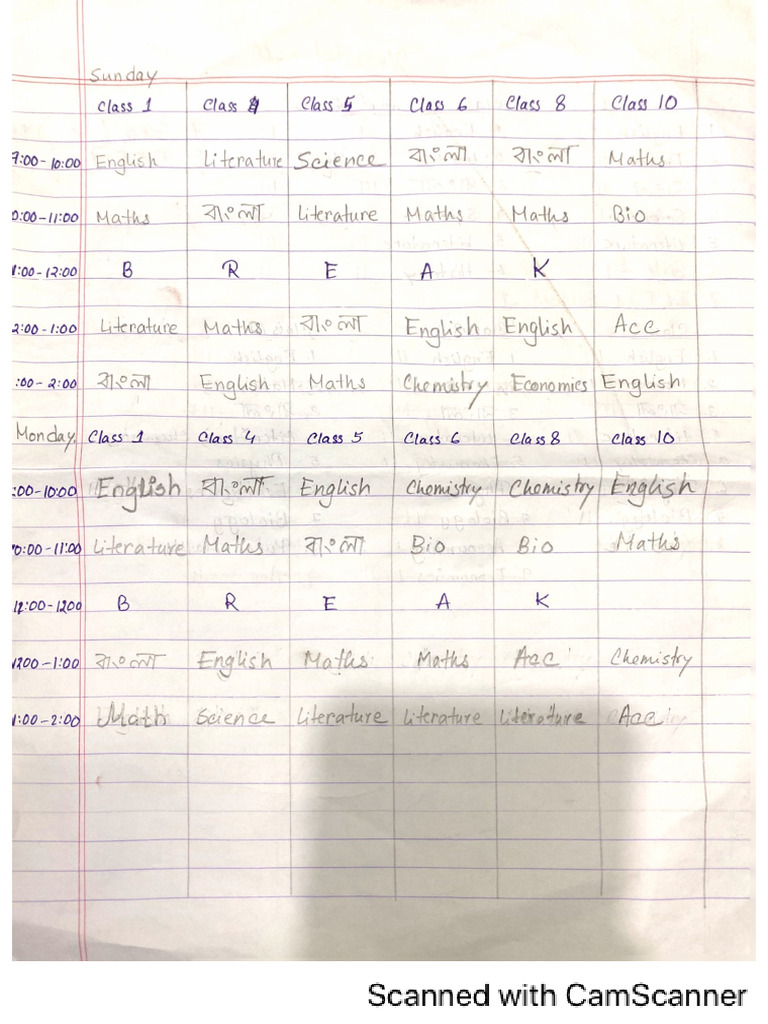 Sunday
Class 1 Class 4 Class 5 Class 6 Class 8 Class 10
9:00-10:00 English Literature Science বাংলা বাংলা Maths
0:00-11:00 Maths বাংলা Literature Maths Maths Bio
1:00-12:00 B R E A K
2:00-1:00 Literature Maths বাংলা English English Acc
:00-2:00 বাংলা English Maths Chemistry Economics English
Monday Class 1 Class 4 Class 5 Class 6 Class 8 Class 10
:00-10:00 English বাংলা English Chemistry Chemistry English
10:00-11:00 Literature Maths বাংলা Bio Bio Maths
12:00-1200 B R E A K
1200-1:00 বাংলা English Maths Maths Acc Chemistry
1:00-2:00 Math Science Literature Literature Literature Acc
Scanned with CamScanner